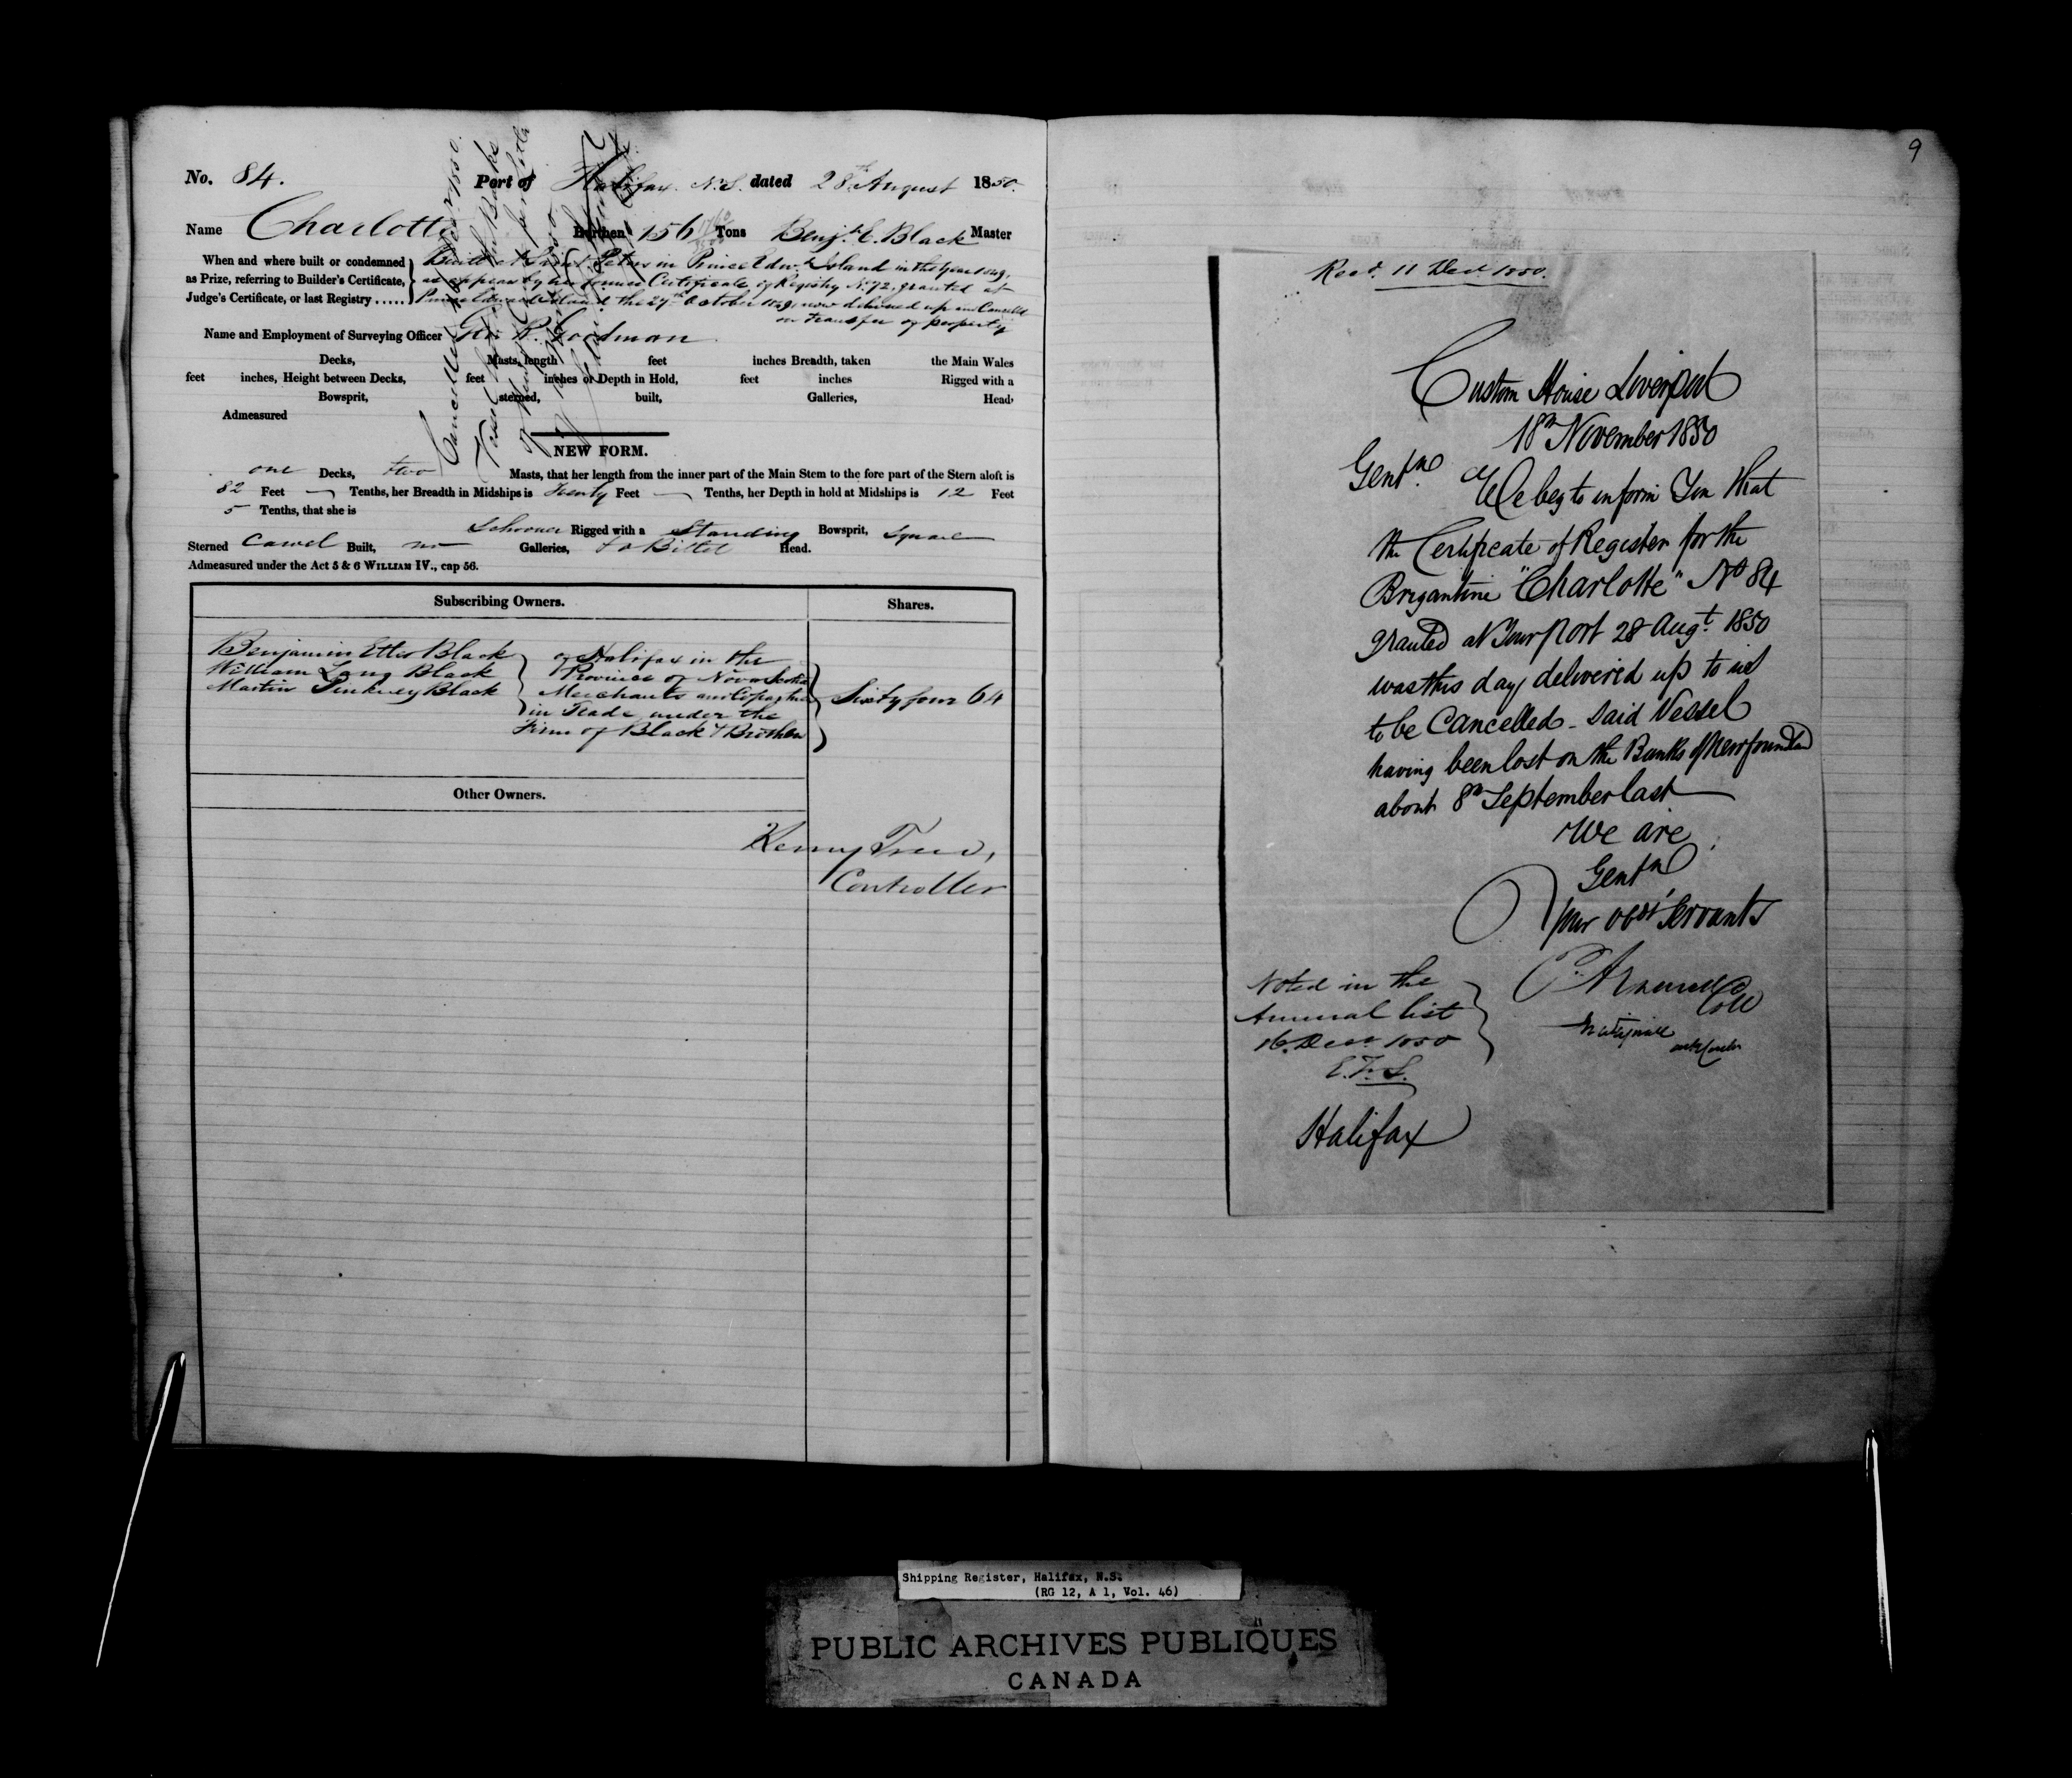 No. 84. Port of Halifax. N.S. dated 28th August 1850.
Name Charlotte Burthen 156 Tons Benjn. E. Black Master
When and where built or condemned as Prize, referring to Builder's Certificate, Judge's Certificate, or last Registry .....
Built at Saint Peters in Prince Edwd. Island in the Year 1849,
as appears by her former Certificate of Registry No. 72. granted at
Prince Edward Island the 27th October 1849, now delivered up and Cancelled
on transfer of property
Name and Employment of Surveying Officer Geo. R. Goodman
Decks, Masts, length feet inches Breadth, taken the Main Wales
feet inches, Height between Decks, feet inches or Depth in Hold, feet inches Rigged with a
Bowsprit, sterned, built, Galleries, Head,
Admeasured
NEW FORM.
one Decks, two Masts, that her length from the inner part of the Main Stem to the fore part of the Stern aloft is
82 Feet — Tenths, her Breadth in Midships is Twenty Feet — Tenths, her Depth in hold at Midships is 12 Feet
5 Tenths, that she is
Schooner Rigged with a Standing Bowsprit, Square
Sterned Carvel Built, no Galleries, Head.
Admeasured under the Act 5 & 6 WILLIAM IV., cap 56.
Subscribing Owners. Shares.
Benjamin Etter Black
William Lang Black
Martin Pinkney Black
of Halifax in the
Province of Nova Scotia
Merchants and Copartners
in Trade under the
Firm of Black & Brothers
Sixty four 64
Other Owners.
Henry Trew,
Controller
9
Recd. 11 Decr. 1850.
Custom House Liverpool
18th November 1850
Gentn.
We beg to inform You that
the Certificate of Register for the
Brigantine "Charlotte" No 84
granted at Your Port 28 Augt. 1850
was this day delivered up to us
to be Cancelled - said Vessel
having been lost on the Banks of Newfoundland
about 8th September last
We are
Gentn
Your obdt Servants
Coll
Noted in the
Annual list
16. Decr. 1850
E.F.S.
Halifax
Shipping Register, Halifax, N.S.
(RG 12, A 1, Vol. 46)
PUBLIC ARCHIVES PUBLIQUES
CANADA